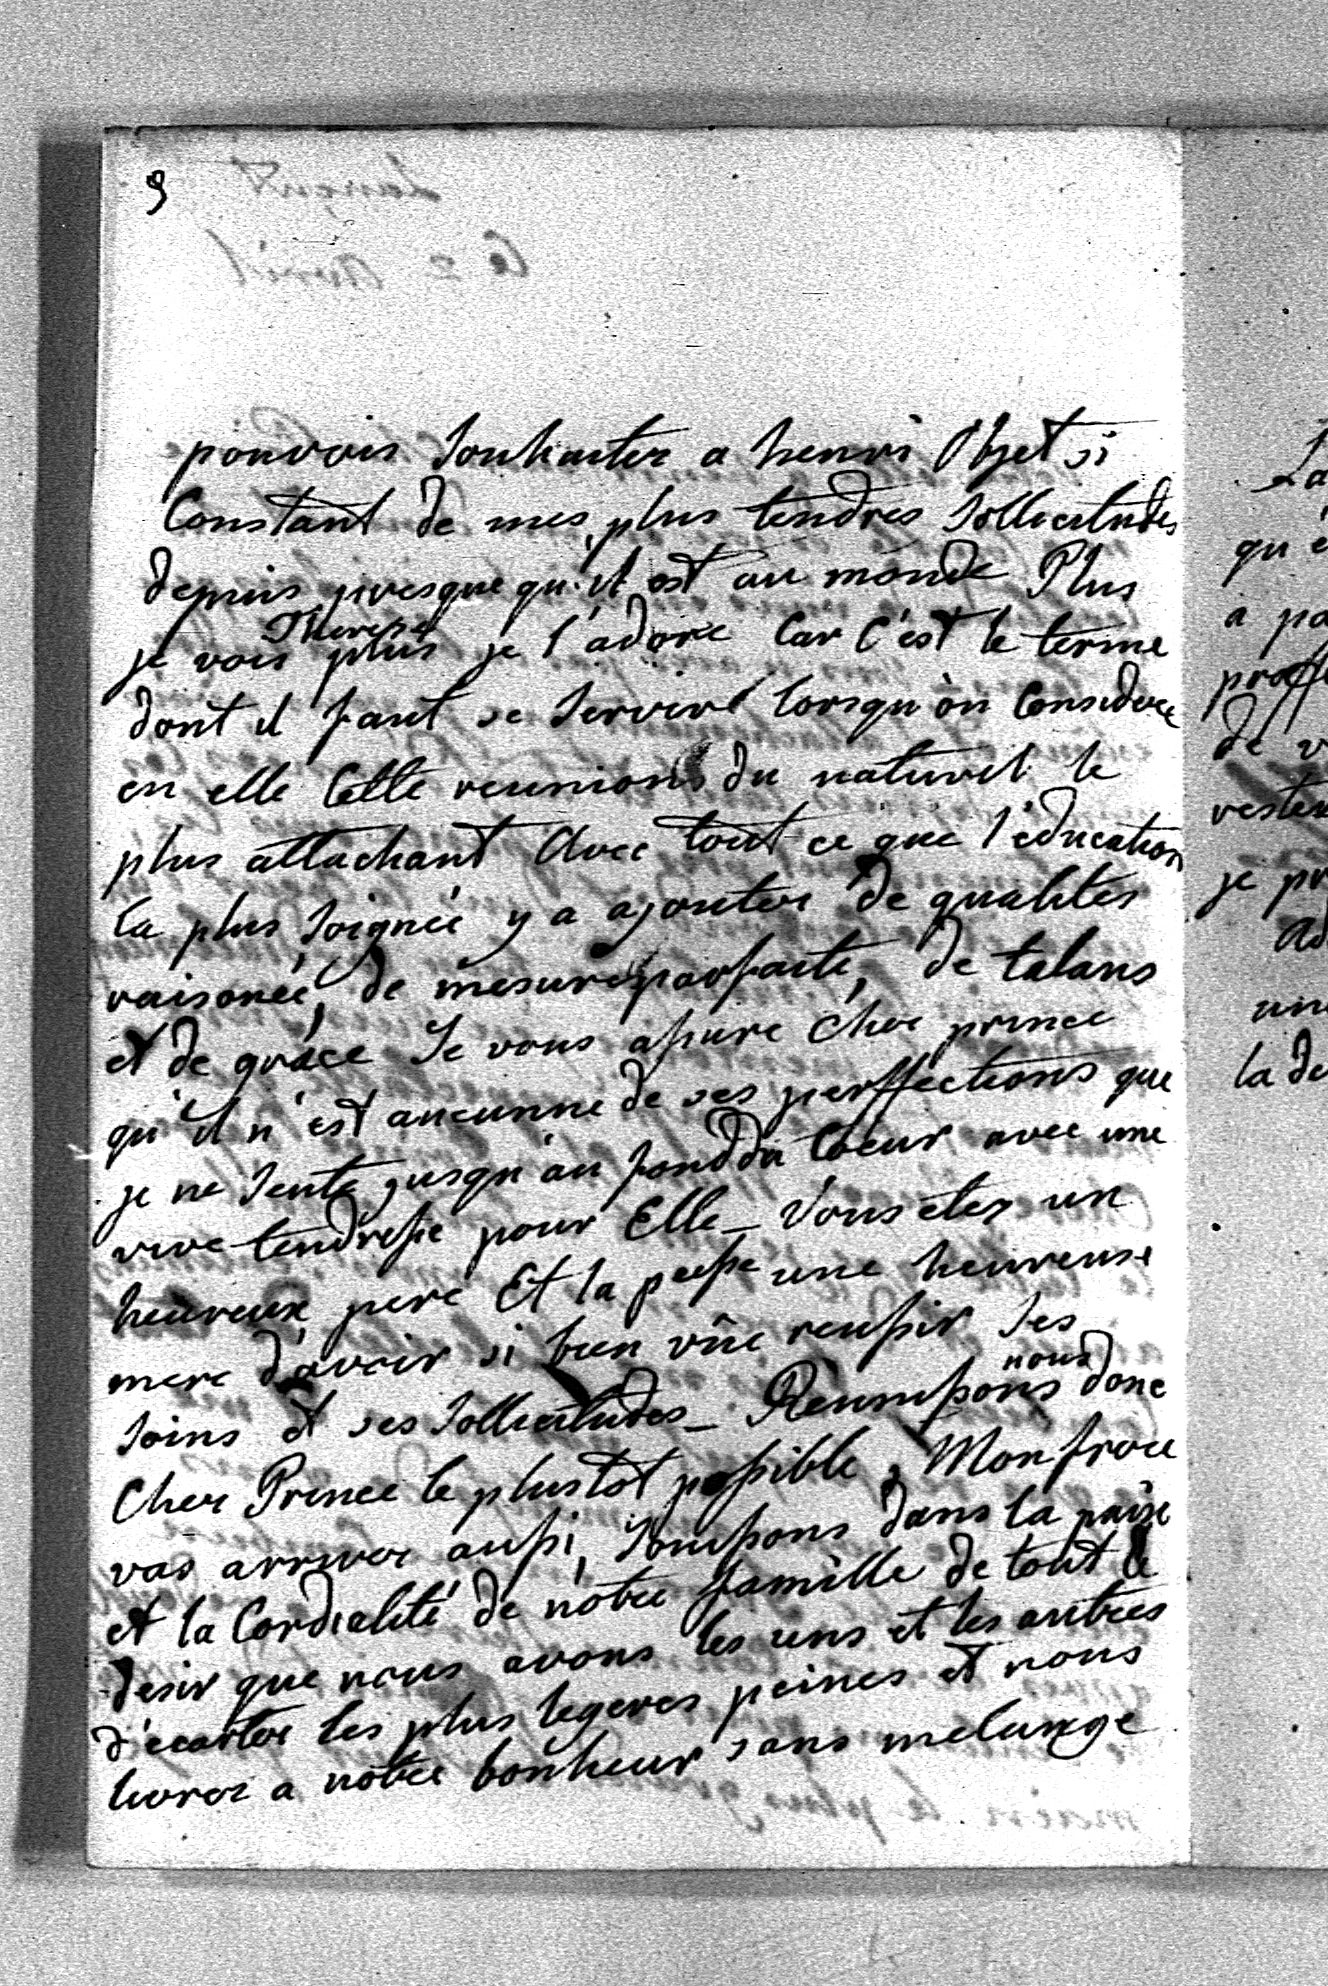 9
pouvois Souhaiter a henri Objet si
Constant de mes plus tendres Sollicitudes
depuis presque qu'il est au monde Plus
je vois Therese plus je l'adore Car C'est le terme
dont il faut se Servire lorsqu'on Considere
en elle Cette reunions du naturel le
plus attachant Avec tout ce que l'éducation
la plus Soignée y a ajouter de qualités
raisonée, de mesure parfaite, de talans
et de grace Je vous assure Cher prince
qu'il n'est aucunne de ses perffections que
je ne Sente jusqu'au fond du Coeur avec une
vive tendresse pour Elle_ Vous etes un
heureux pere Et la psse une heureuse
mere d'avoir si bien vûe reussir Ses
Soins et ses Sollicitudes_ Reunissons nous donc
Cher Prince le plustot possible, Mon frere
vas arriver aussi, Jouissons dans la paix
et la Cordialité de notre famille de tout le
desir que nous avons les uns et les autres
d'ecarter les plus legeres peines et nous
livrer a notre bonheur sans melange
La
qu'e
a pa
de v
rester
je pr
Ad
une
la de